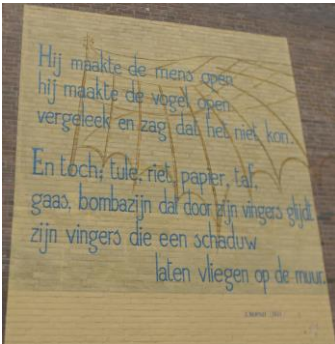 Hij maakte de mens open
hij maakte de vogel open
vergeleek en zag dat het niet kon.
En toch; tule, riet, papier, taf,
gaas, bombazijn dat door zijn vingers glijdt
zijn vingers die een schaduw
laten vliegen op de muur.